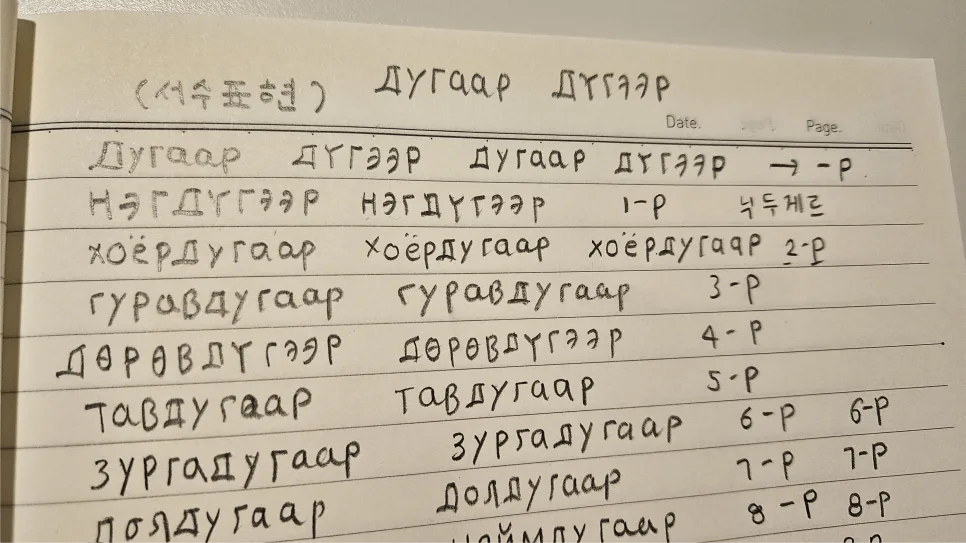 (서수표현) Дугаар Дүгээр
Date. Page.
Дугаар Дүгээр Дугаар Дүгээр → -р
Нэгдүгээр нэгдүгээр 1-р 닉두게르
хоёрдугаар хоёрдугаар хоёрдугаар 2-р
гуравдугаар гуравдугаар 3-р
дөрөвдүгээр дөрөвдүгээр 4-р
тавдугаар тавдугаар 5-р
зургадугаар зургадугаар 6-р 6-р
долдугаар долдугаар 7-р 7-р
наймдугаар 8-р 8-р